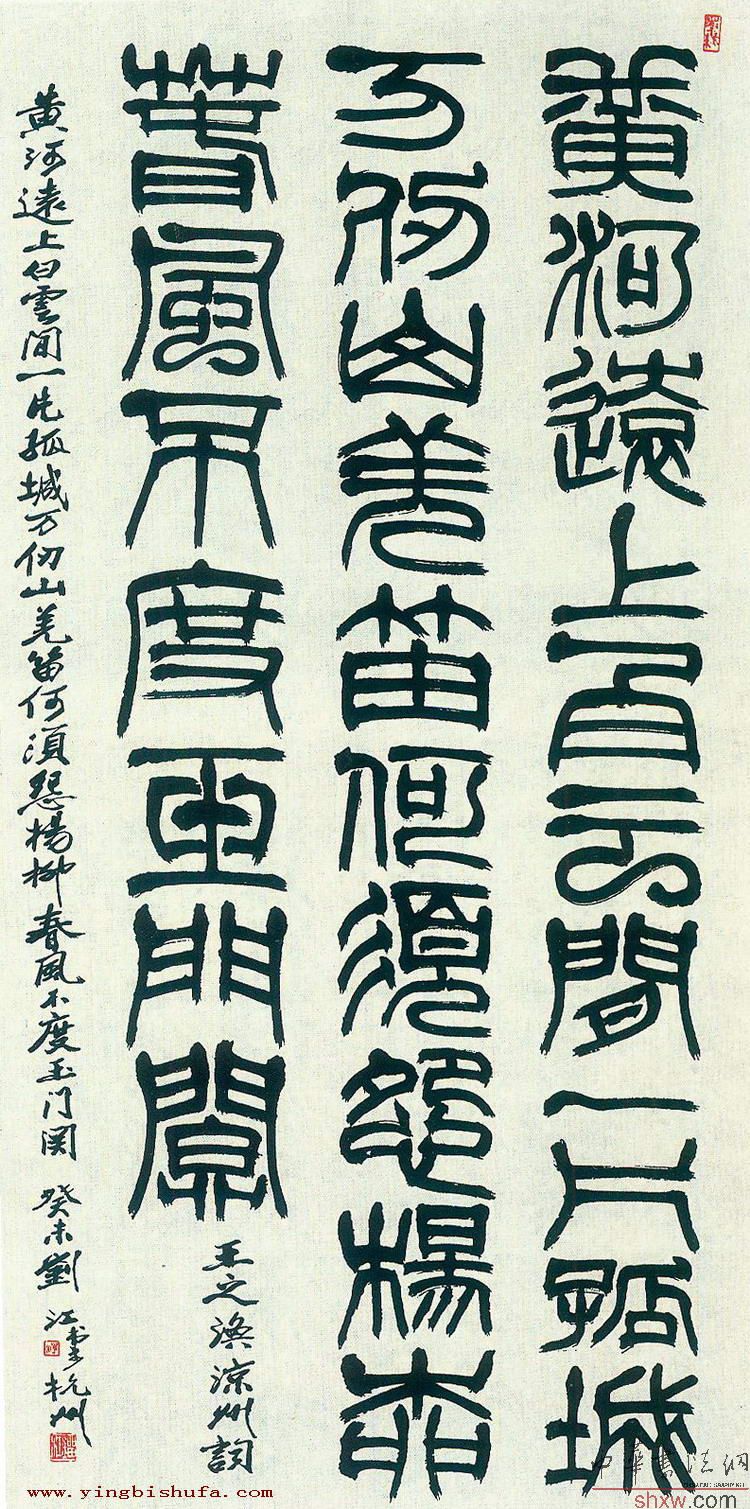 黄河遠上白云間一片孤城
万仞山羌笛何須怨楊柳
春風不度玉門關
王之渙涼州詞
黄河遠上白雲间一片孤城万仞山羌笛何須怨楊柳春風不度玉门関 癸未劉江書於杭州
www.yingbishufa.com
中華書法網
shxw.com